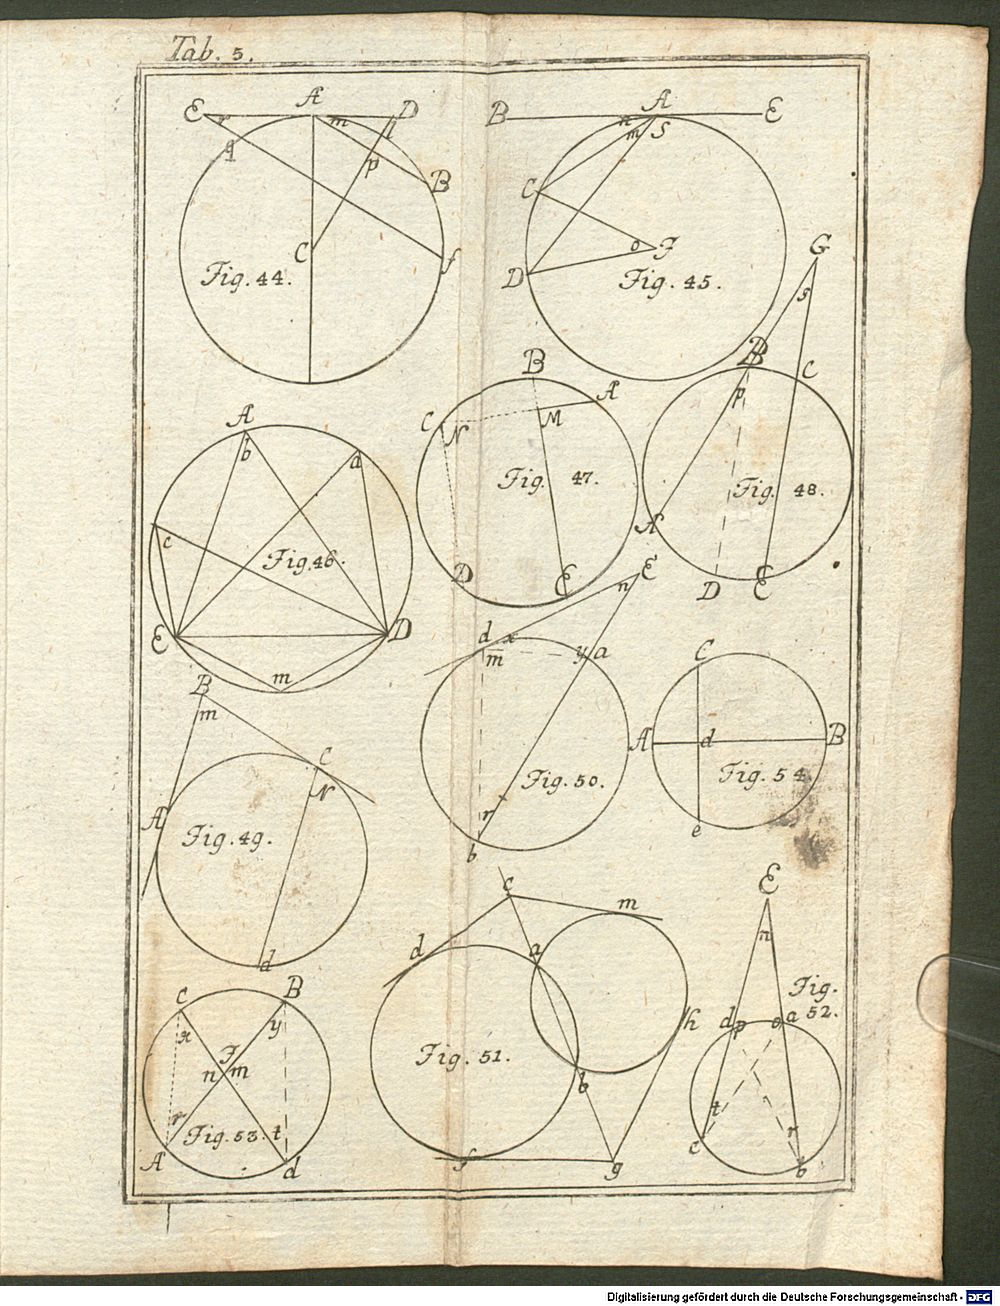 Tab. 5.
E r A m D l
q p B
C f
Fig. 44.
B n A E
m s
C
o F
D Fig. 45.
G
s
B C
p
Fig. 48.
A
D E
B A
C N M
Fig. 47.
D E
A b a
c Fig. 46.
E D
m
E
n
d x
m y a
r Fig. 50.
b
C
A d B
Fig. 54.
e
B
m
C
N
A
Fig. 49.
d
c m
d a
h
Fig. 51.
b
f g
E
n
Fig.
52.
d p o a
t r
c b
C B
x y
F
n m
r
Fig. 53. t
A d
Digitalisierung gefördert durch die Deutsche Forschungsgemeinschaft - DFG